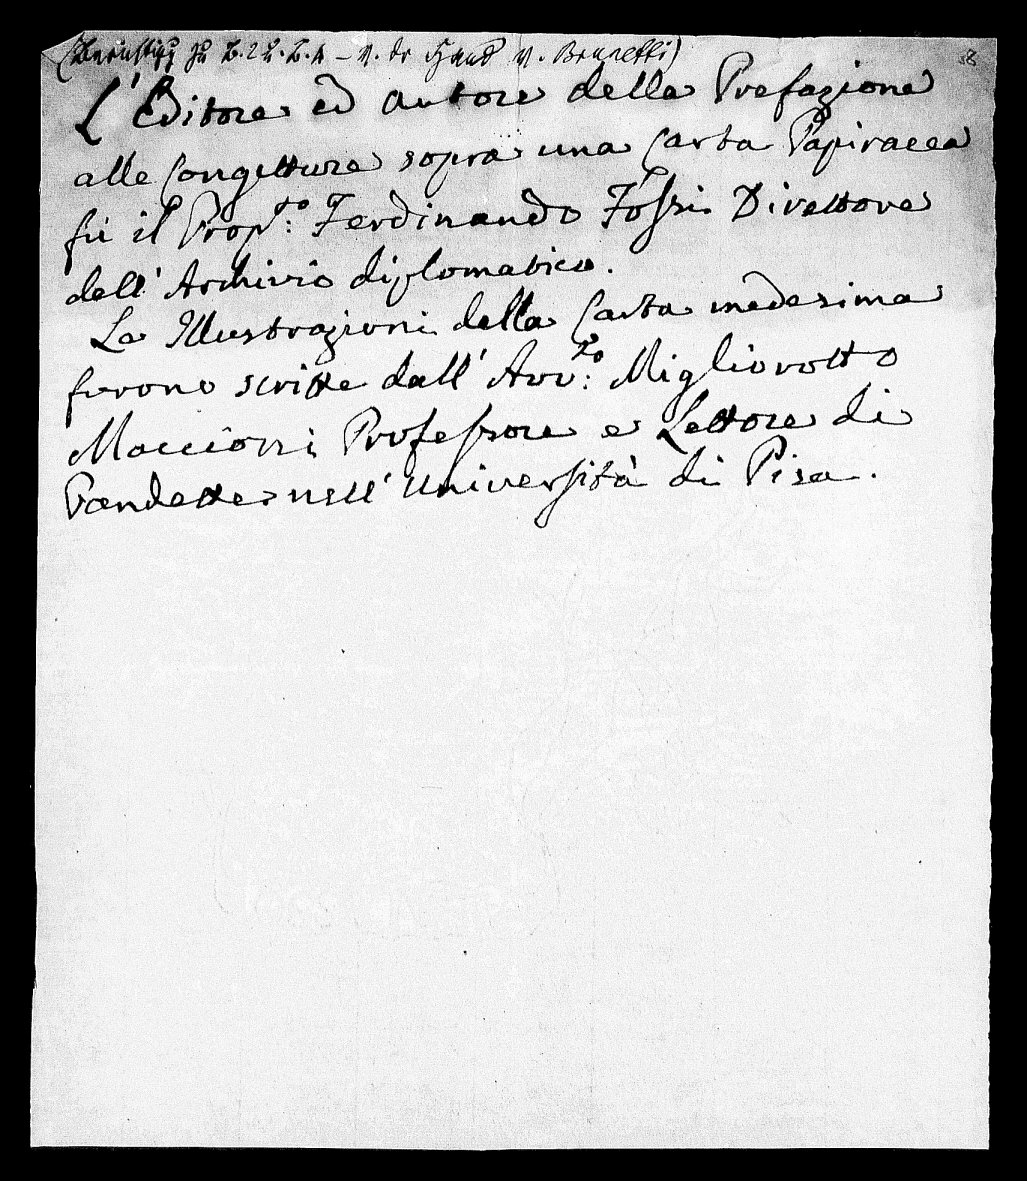 zu B. 2 u. B. 4 – v. der Hand v. Brunetti)
58
L'Editore ed autore della Prefazione
alle Congetture sopra una Carta Papiracea
fù il Prop.to Ferdinando Fossi Direttore
dell' Archivio diplomatico.
Le Illustrazioni della Carta medesima
furono scritte dall' Avv.to Migliorotto
Maccioni Professore e Lettore di
Pandette nell' Università di Pisa.